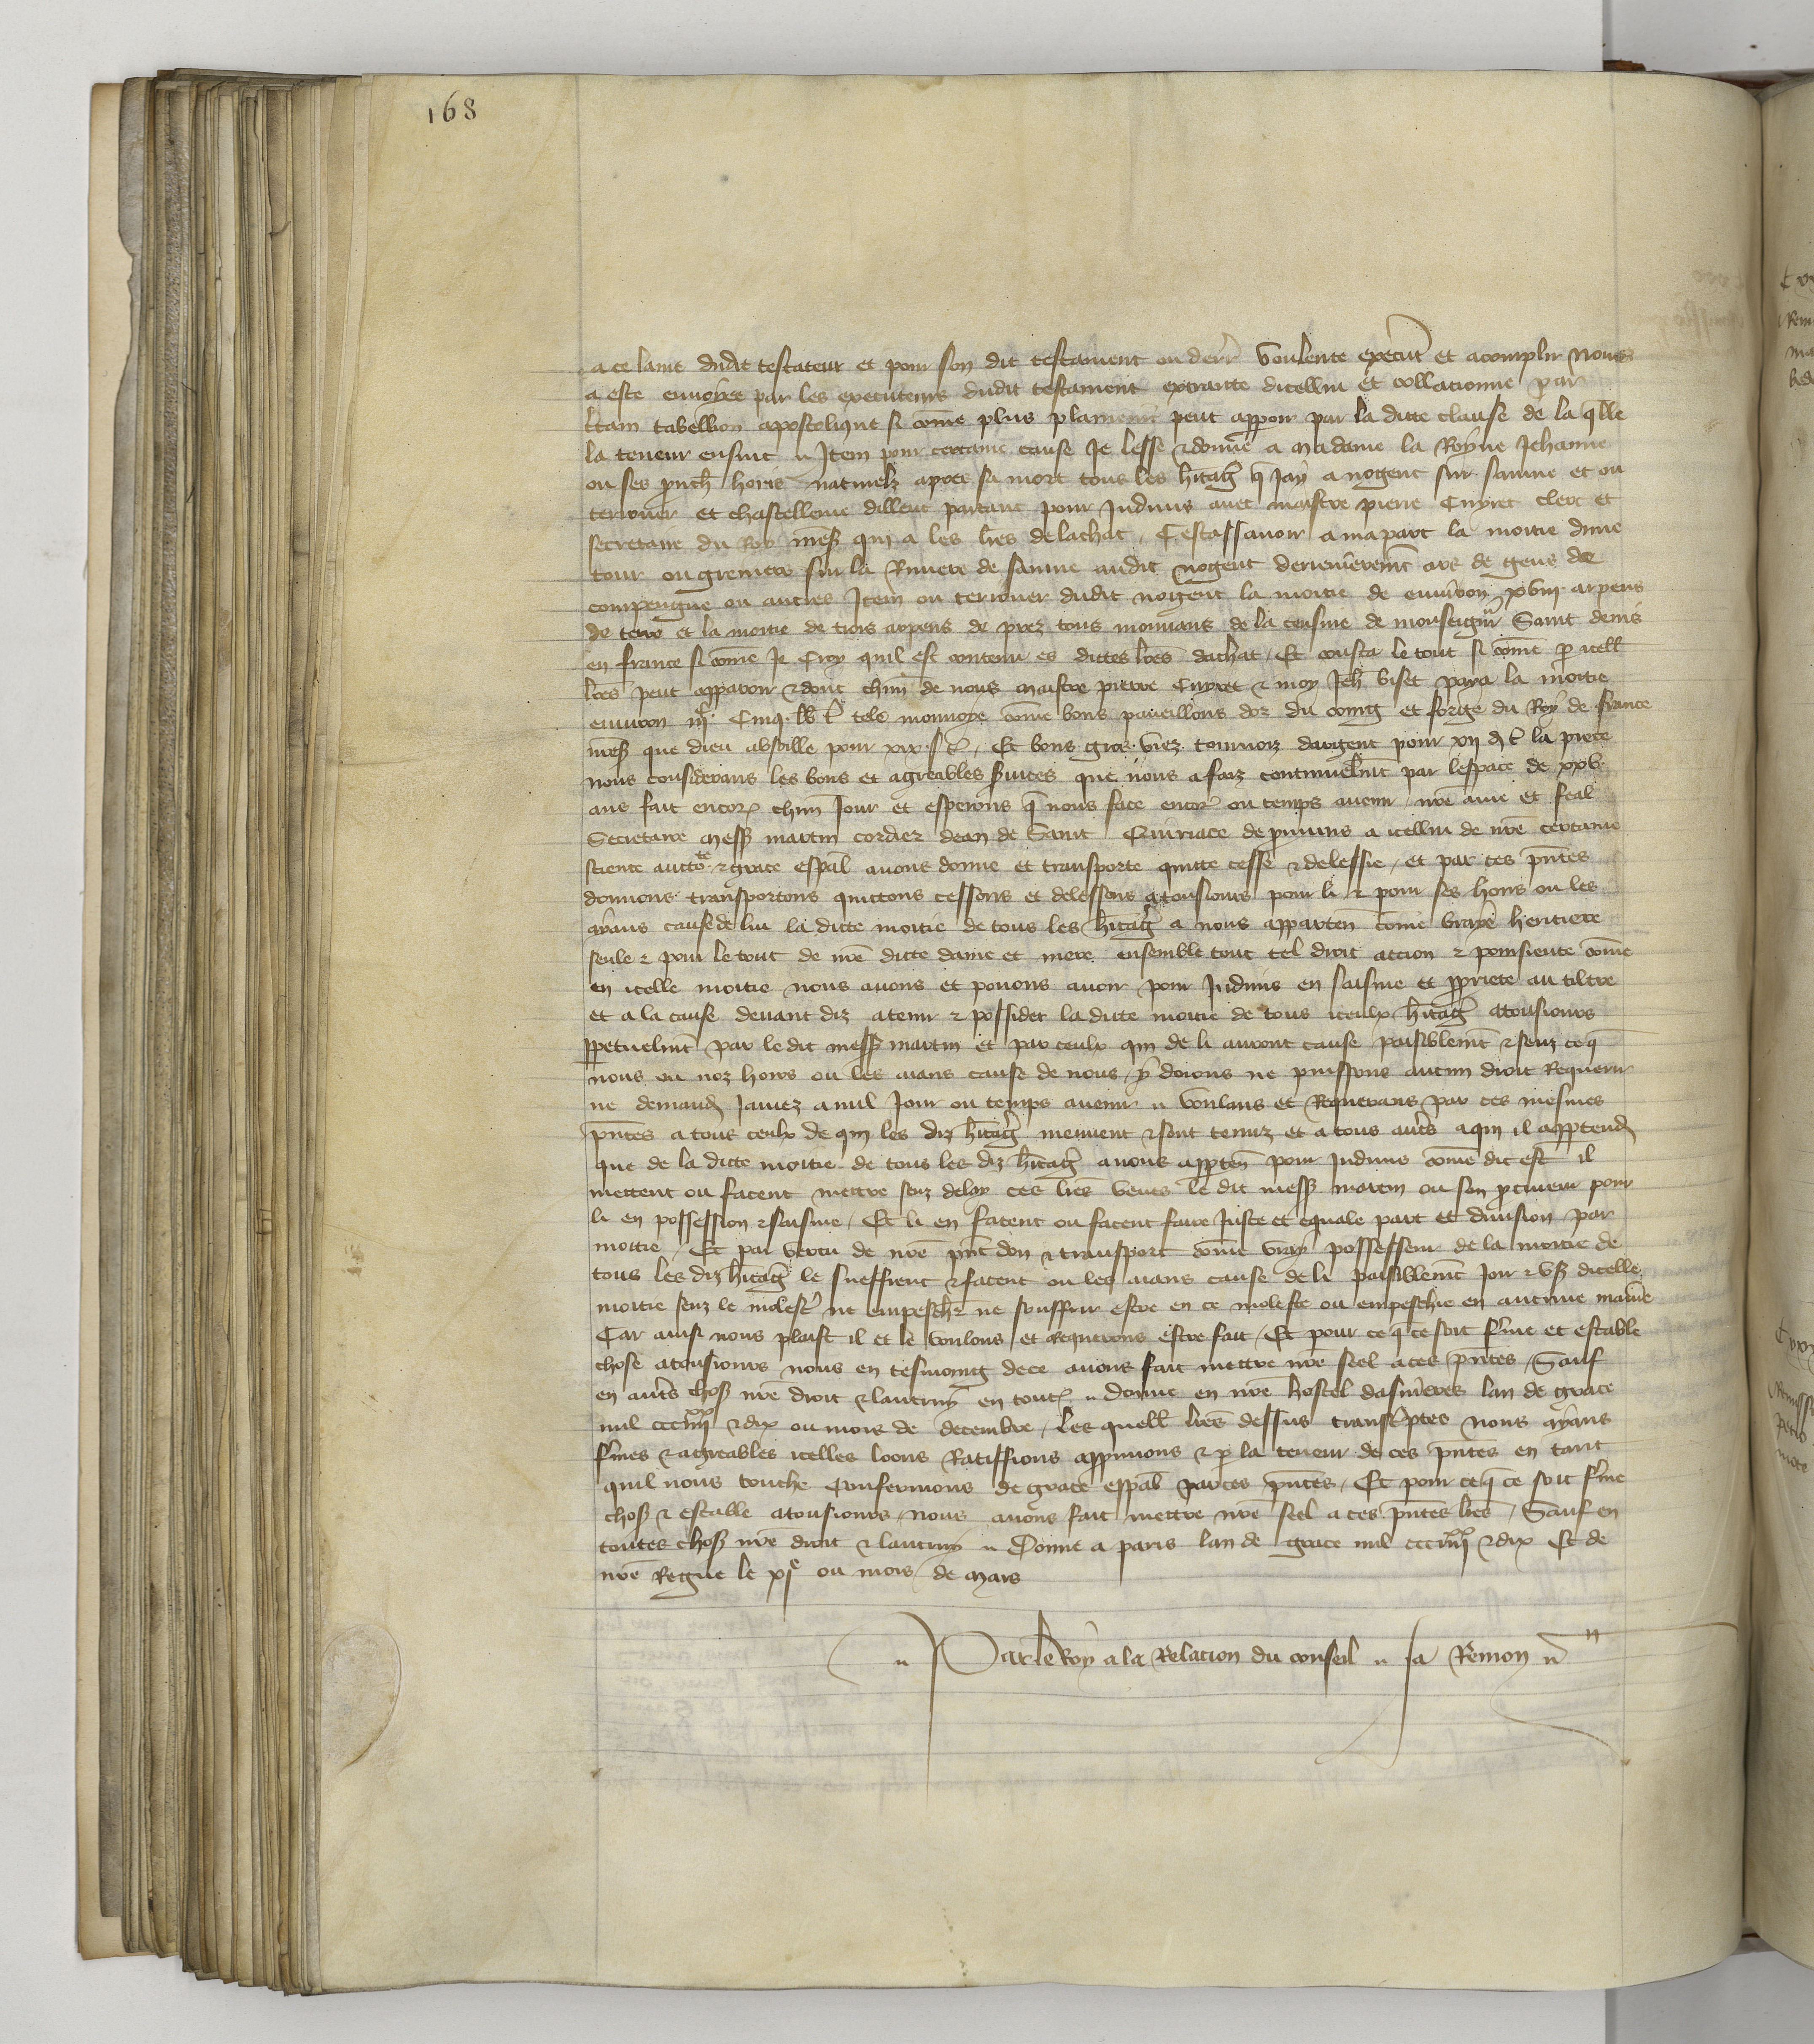 168
a ce lame dudit testateur et pour son dit testament ou derr voulente execut et acomplir nous
a este envoyee par les executeurs dudit testament extraitte dicellui et collacionne par
tabellion apostolique si come plus plainem peut apparoir par la ditte clause de la qlle
la teneur ensuit Item pour certaine cause Je lesse et donne a madame la Royne Jehanne
ou ses hoirs naturelz apres sa mort tous les heritag q Jay a nogent sur sanne et ou
terrouer et chastellenie dillent partant pour Indivis avec maistre pierre Cuyret clerc et
secretaire du Roy mess qui a les lres de lachat Cestassavoir a ma part la moitie dune
tour ou grenier sur la Riviere de sanne audit nogent derrenierement ars de gens de
compengne ou autres Item ou terrouer dudit nogent la moitie de environ xviii arpens
de terre et la moitie de trois arpens de prez tous mouvans de la censive de monseigneur Saint denis
en france si come Je Croy quil est contenu es dictes lres dachat Et cousta le tout si come p icell
lres peut apparoir et dont chun de nous maistre pierre Cuyret et moy Jeh biset paya la moitie
environ Cinq lb t tele monnoye come bons paveillons dor du coing et forge du Roy de france
mess que dieu absoille pour xix s t Et bons gros viez tournoiz dargent pour xii d t la piece
nous considerans les bons et agreables services que nous a faiz continuelment par lespace de xxv
ans fait encor chun Jour et esperons q nous face encor ou temps avenir nre ame et feal
Secretaire mess martin cordier dean de Saint Quiriace de prouvins a icellui de nre certaine
science auctote et grace espal avons donne et transporte quitte cesse et delessie et par ces pntes
donnons transportons quittons cessons et delessons a tousiours pour li et pour ses hoirs ou les
ayans cause de lui la ditte moitie de tous les heritag a nous apparten come vraye heritiere
seule et pour le tout de nre ditte dame et mere ensemble tout tel droit accion et poursieute come
en icelle moitie nous avons et povons avoir pour Indivis en saisine et propriete au tiltre
et a la cause devant diz a tenir et possider la ditte moitie de tous iceulx heritag a tousiours
perpetuelmt par le dit mess martin et par ceulx qui de li auront cause paisiblemt et senz ce q
nous ou noz hoirs ou les aians cause de nous y doions ne puissons aucun droit Requerir
ne demand Jamez a nul Jour ou temps avenir voulans et Requerans par ces mesmes
pntes a tous ceulx de qui les diz heritag meuvent et sont tenuz et a tous autres a qui il apptend
que de la ditte moitie de tous les diz heritag a nous appten pour Indivis come dit est il
mettent ou facent mettre senz delay ces lres veues le dit mess martin ou son procureur pour
li en possession et saisine Et li en facent ou facent faire Juste et equale part et division par
moitie Et par vertu de nre pnt don et transport come vray possesseur de la moitie de
tous les diz heritag le sueffrent et facent ou les aians cause de li paisiblemt Joir et us dicelle
moitie senz le molest ne empesch ne souffrir estre en ce moleste ou empeschie en aucune maniere
Car ainsi nous plaist il et le voulons et Requerons estre fait Et pour ce q ce soit ferme et estable
chose a tousiours nous en tesmoing de ce avons fait mettre nre seel a ces pntes Sauf
en autres chos nre droit et lautruy en tout donne en nre hostel dasnieres lan de grace
mil ccciiiixx et dix ou mois de decembre Les quell lres dessus transcriptes nous ayans
fermes et agreables icelles loons Ratiffions approuvons et p la teneur de ces pntes en tant
quil nous touche Confermons de grace espal par ces pntes Et pour ce q ce soit ferme
chos et estable a tousiours nous avons fait mettre nre seel a ces pntes lres Sauf en
toutes chos nre droit et lautruy Donne a paris lan de grace mil ccciiiixx et dix Et de
nre Regne le xje ou mois de mars
Par le Roy a la Relacion du conseil Ja Remon